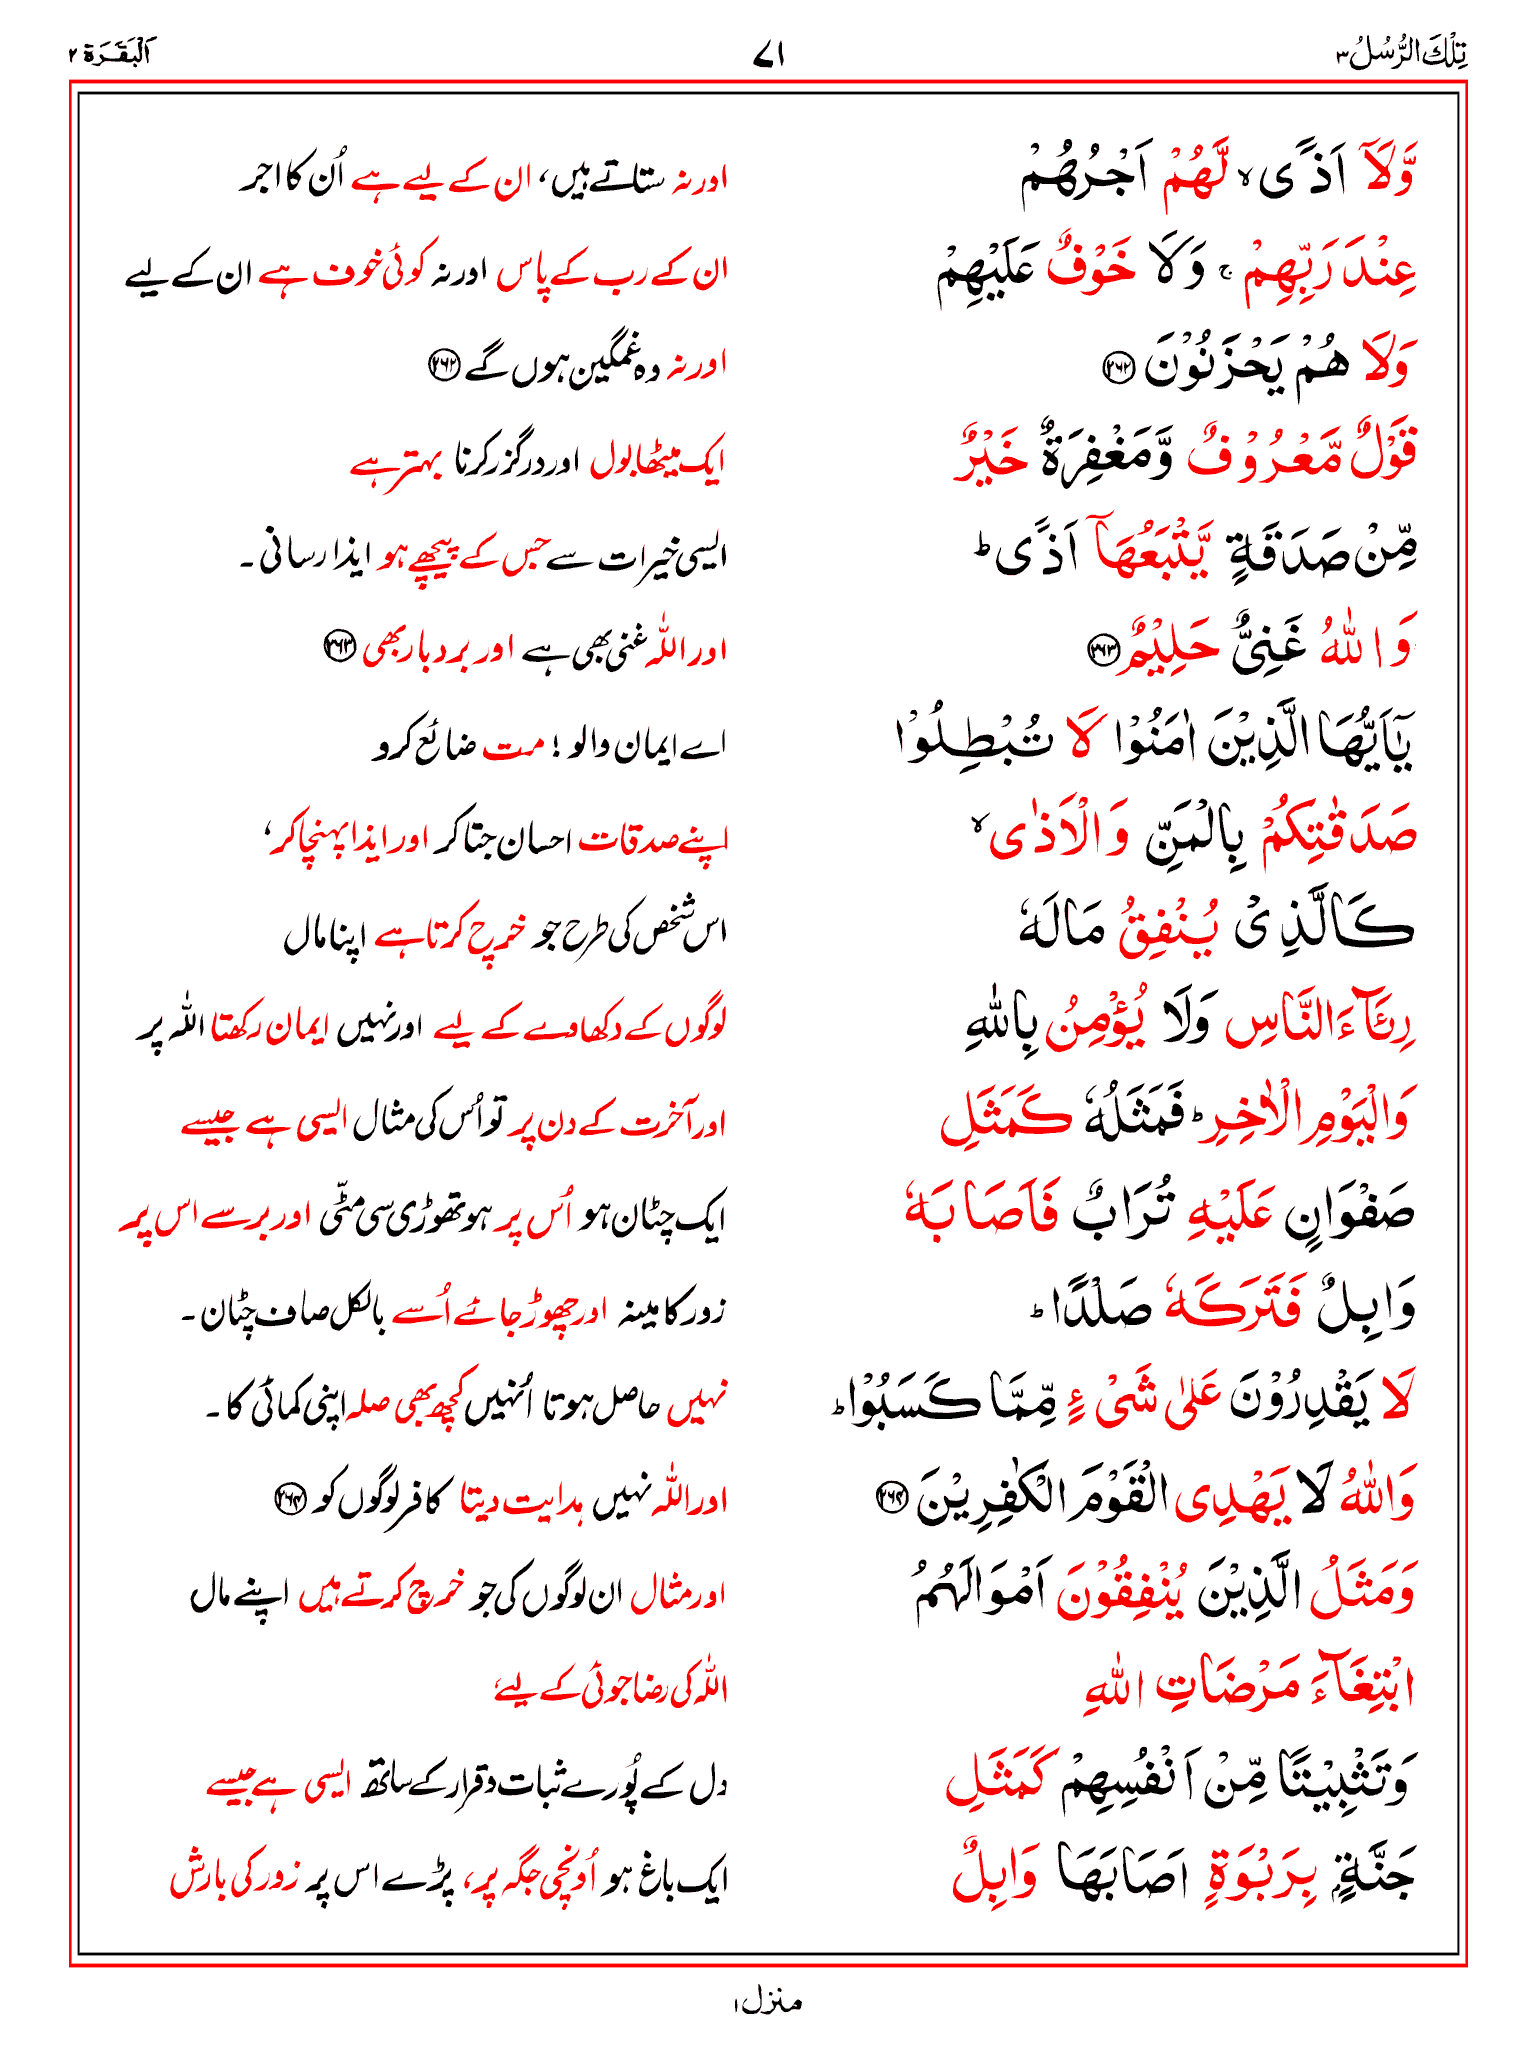 تِلْكَ الرُّسُلُ ٣ ٧١ اَلْبَقَرَة ٢
وَّلَآ اَذًى ۙ لَّهُمْ اَجْرُهُمْ اور نہ ستاتے ہیں، ان کے لیے ہے اُن کا اجر
عِنْدَ رَبِّهِمْ ۚ وَلَا خَوْفٌ عَلَيْهِمْ ان کے رب کے پاس اور نہ کوئی خوف ہے ان کے لیے
وَلَا هُمْ يَحْزَنُوْنَ ۲۶۲ اور نہ وہ غمگین ہوں گے ۲۶۲
قَوْلٌ مَّعْرُوْفٌ وَّمَغْفِرَةٌ خَيْرٌ ایک میٹھا بول اور درگزر کرنا بہتر ہے
مِّنْ صَدَقَةٍ يَّتْبَعُهَآ اَذًى ؕ ایسی خیرات سے جس کے پیچھے ہو ایذا رسانی۔
وَاللّٰهُ غَنِيٌّ حَلِيْمٌ ۲۶۳ اور اللّٰہ غنی بھی ہے اور بردبار بھی ۲۶۳
يٰٓاَيُّهَا الَّذِيْنَ اٰمَنُوْا لَا تُبْطِلُوْا اے ایمان والو! مت ضائع کرو
صَدَقٰتِكُمْ بِالْمَنِّ وَالْاَذٰى ۙ اپنے صدقات احسان جتا کر اور ایذا پہنچا کر،
كَالَّذِيْ يُنْفِقُ مَالَهٗ اس شخص کی طرح جو خرچ کرتا ہے اپنا مال
رِئَآءَ النَّاسِ وَلَا يُؤْمِنُ بِاللّٰهِ لوگوں کے دکھاوے کے لیے اور نہیں ایمان رکھتا اللّٰہ پر
وَالْيَوْمِ الْاٰخِرِ ؕ فَمَثَلُهٗ كَمَثَلِ اور آخرت کے دن پر تو اُس کی مثال ایسی ہے جیسے
صَفْوَانٍ عَلَيْهِ تُرَابٌ فَاَصَابَهٗ ایک چٹان ہو اُس پر ہو تھوڑی سی مٹّی اور برسے اس پر
وَابِلٌ فَتَرَكَهٗ صَلْدًا ؕ زور کا مینہ اور چھوڑ جائے اُسے بالکل صاف چٹان۔
لَا يَقْدِرُوْنَ عَلٰى شَيْءٍ مِّمَّا كَسَبُوْا ؕ نہیں حاصل ہوتا اُنہیں کچھ بھی صلہ اپنی کمائی کا۔
وَاللّٰهُ لَا يَهْدِى الْقَوْمَ الْكٰفِرِيْنَ ۲۶۴ اور اللّٰہ نہیں ہدایت دیتا کافر لوگوں کو ۲۶۴
وَمَثَلُ الَّذِيْنَ يُنْفِقُوْنَ اَمْوَالَهُمُ اور مثال ان لوگوں کی جو خرچ کرتے ہیں اپنے مال
ابْتِغَآءَ مَرْضَاتِ اللّٰهِ اللّٰہ کی رضا جوئی کے لیے،
وَتَثْبِيْتًا مِّنْ اَنْفُسِهِمْ كَمَثَلِ دل کے پُورے ثبات و قرار کے ساتھ ایسی ہے جیسے
جَنَّةٍۭ بِرَبْوَةٍ اَصَابَهَا وَابِلٌ ایک باغ ہو اُونچی جگہ پر، پڑے اس پر زور کی بارش
منزل ۱